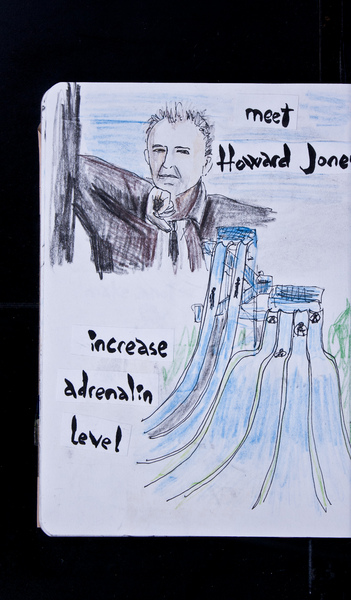 meet
Howard Jone
increase
adrenalin
level